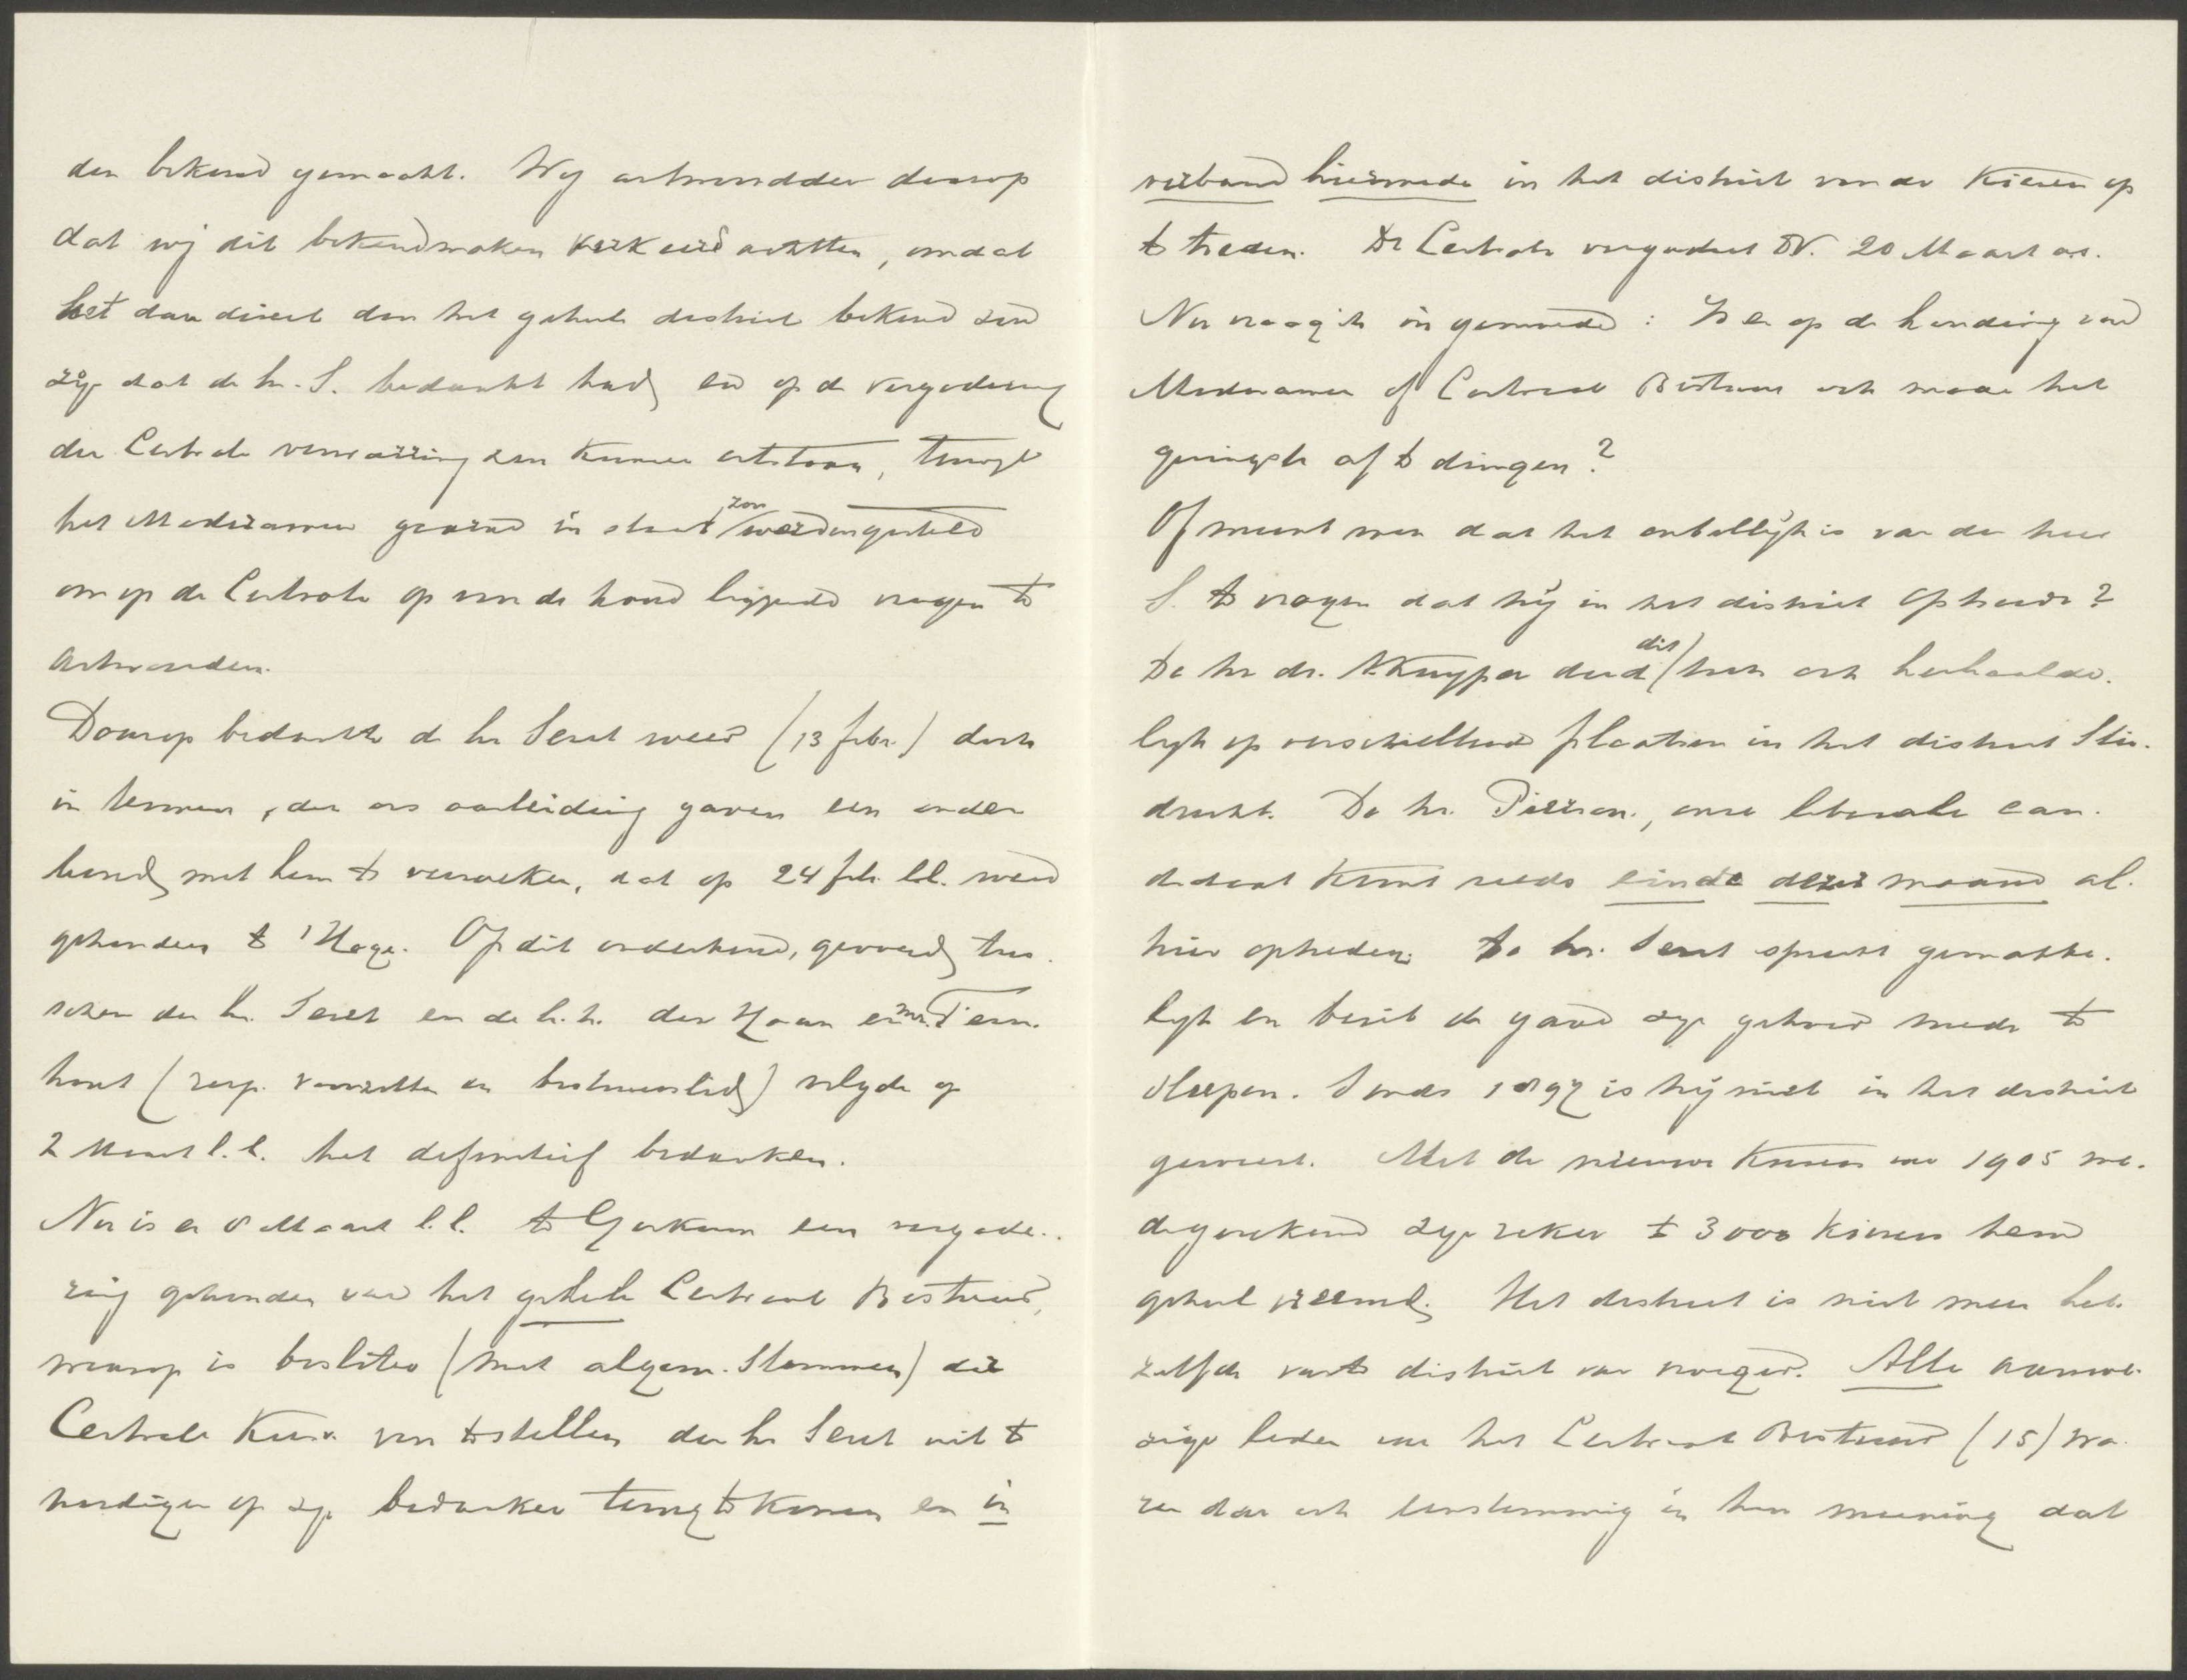 den bekend gemaakt. Wij antwoordden daarop
dat wij dit bekendmaken verkeerd achtten, omdat
het dan direct door het geheele district bekend zou
zijn dat de hr. S. bedankt had, en op de vergadering
der Centrale verwarring zou kunnen ontstaan, terwijl
het Moderamen geenszins in staat zou worden gesteld
om op de Centrale op voor de hand liggende vragen te
antwoorden.
Daarop bedankte de hr Seret weer (13 febr.) doch
in termen, die ons aanleiding gaven een onder
houd met hem te verzoeken, dat op 24 feb. l.l. werd
gehouden te 's Hage. Op dit onderhoud, gevoerd tus-
schen den hr. Seret en de h.h. den Haan en mr. Tern.
hout (resp. voorzitter en bestuurslid) volgde op
2 Maart l.l. het definitief bedanken.
Nu is er 8 Maart l.l. te Gorkum een vergade-
ring gehouden van het geheele Centraal Bestuur,
waarop is besloten (met algem. stemmen) die
Centrale Kiesv. voor te stellen den hr Seret uit te
noodigen op zijn bedanken terug te komen en in
verband hiermede in het district voor de Kiezers op
te treden. De Centrale vergadert DV. 20 Maart a.s.
Nu vraag ik in gemoede: Is er op de houding van
Moderamen of Centraal Bestuur ook maar het
geringste af te dingen?
Of meent men dat het onbillijk is van den heer
S. te vragen dat hij in het district optrede?
De hr dr. A. Kuyper deed dit toch ook herhaalde-
lijk op verschillende plaatsen in het district Slie-
drecht. De hr. Pierson, onze liberale can-
didaat komt reeds einde dezer maand al-
hier optreden. De hr. Seret spreekt gemakke-
lijk en bezit de gave zijn gehoor mede te
sleepen. Sinds 1897 is hij niet in het district
geweest. Met de nieuwe Kiezers van 1905 me-
degerekend zijn zeker ± 3000 kiezers hem
geheel vreemd. Het district is niet meer het-
zelfde vaste district van vroeger. Alle aanwe-
zige leden van het Centraal Bestuur (15) wa-
ren dan ook eenstemmig in hun meening dat